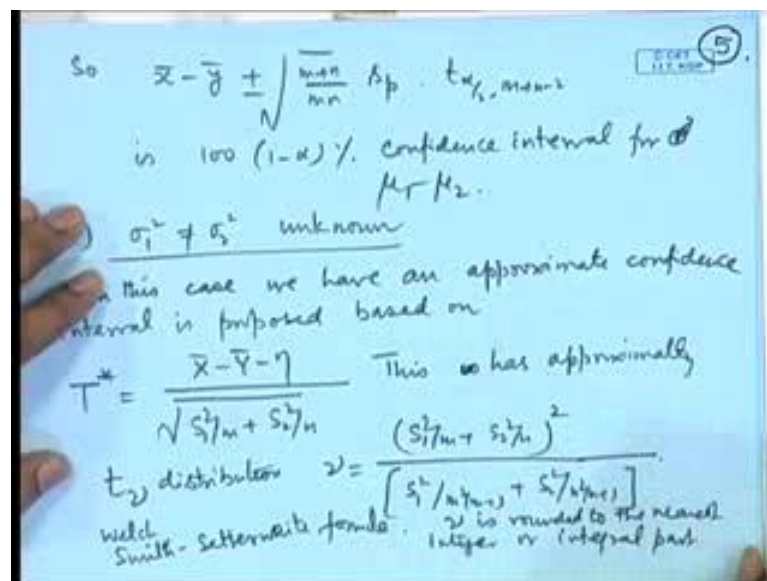 5.
So x̄ - ȳ ± √(m+n/mn) sp . tα/2, m+n-2
is 100 (1-α) %. confidence interval for
μ1 - μ2.
) σ1² ≠ σ2² unknown
In this case we have an approximate confidence
interval is proposed based on
T* = (X̄ - Ȳ - η) / √(S1²/m + S2²/n) This has approximally
tν distribution ν = (S1²/m + S2²/n)² /
Welch
Smith-Satterwaite formula. ν is rounded to the nearest
integer or integral part